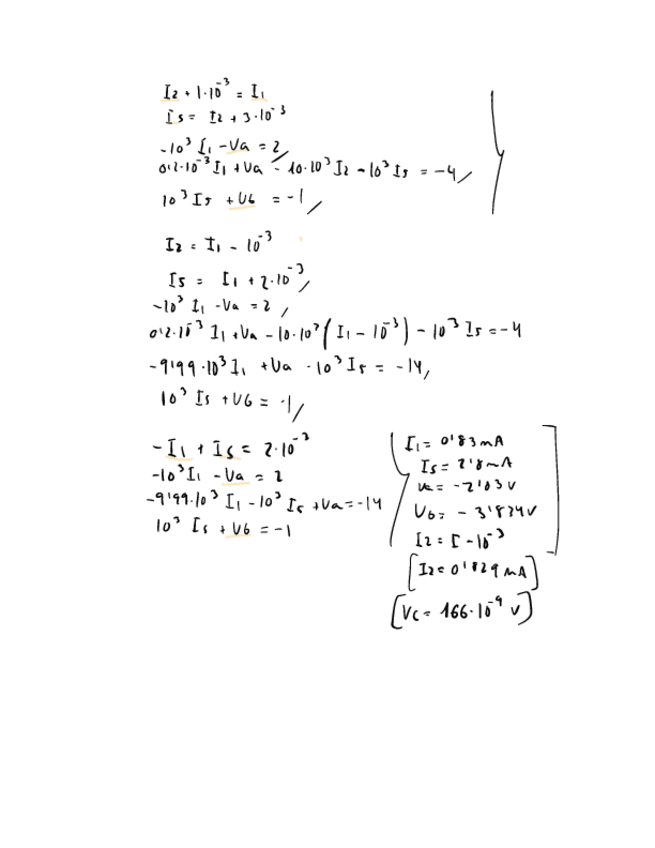 I2 + 1·10^-3 = I1
I5 = I2 + 3·10^-3
-10^3 I1 - Va = 2
0'2·10^-3 I1 + Va - 10·10^3 I2 - 10^3 I5 = -4
10^3 I5 + V6 = -1
I2 = I1 - 10^-3
I5 = I1 + 2·10^-3
-10^3 I1 - Va = 2
0'2·10^-3 I1 + Va - 10·10^3 (I1 - 10^-3) - 10^3 I5 = -4
-9'99·10^3 I1 + Va - 10^3 I5 = -14
10^3 I5 + V6 = -1
-I1 + I5 = 2·10^-3
-10^3 I1 - Va = 2
-9'99·10^3 I1 - 10^3 I5 + Va = -14
10^3 I5 + V6 = -1
I1 = 0'83 mA
I5 = 2'8 mA
= -2'83 V
V6 = - 3'834 V
I2 = I - 10^-3
[I2 = 0'829 mA]
[Vc = 166·10^-9 V]